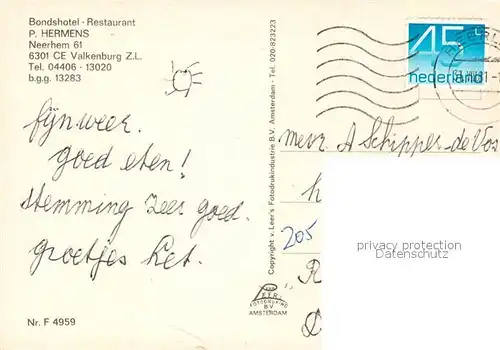 Bondshotel - Restaurant
P. HERMENS
Neerhem 61
6301 CE Valkenburg Z.L.
Tel. 04406 - 13020
b.g.g. 13283
fijn weer.
goed eten!
Stemming zeer goed.
groetjes Ket.
Nr. F 4959
Copyright v. Leer's Fotodrukindustrie B.V. Amsterdam - Tel. 020-823223
VAN LEER
FOTODRUKIND
BV
AMSTERDAM
45 c
nederland
mevr. A Schipper-de Vos
205
privacy protection
Datenschutz